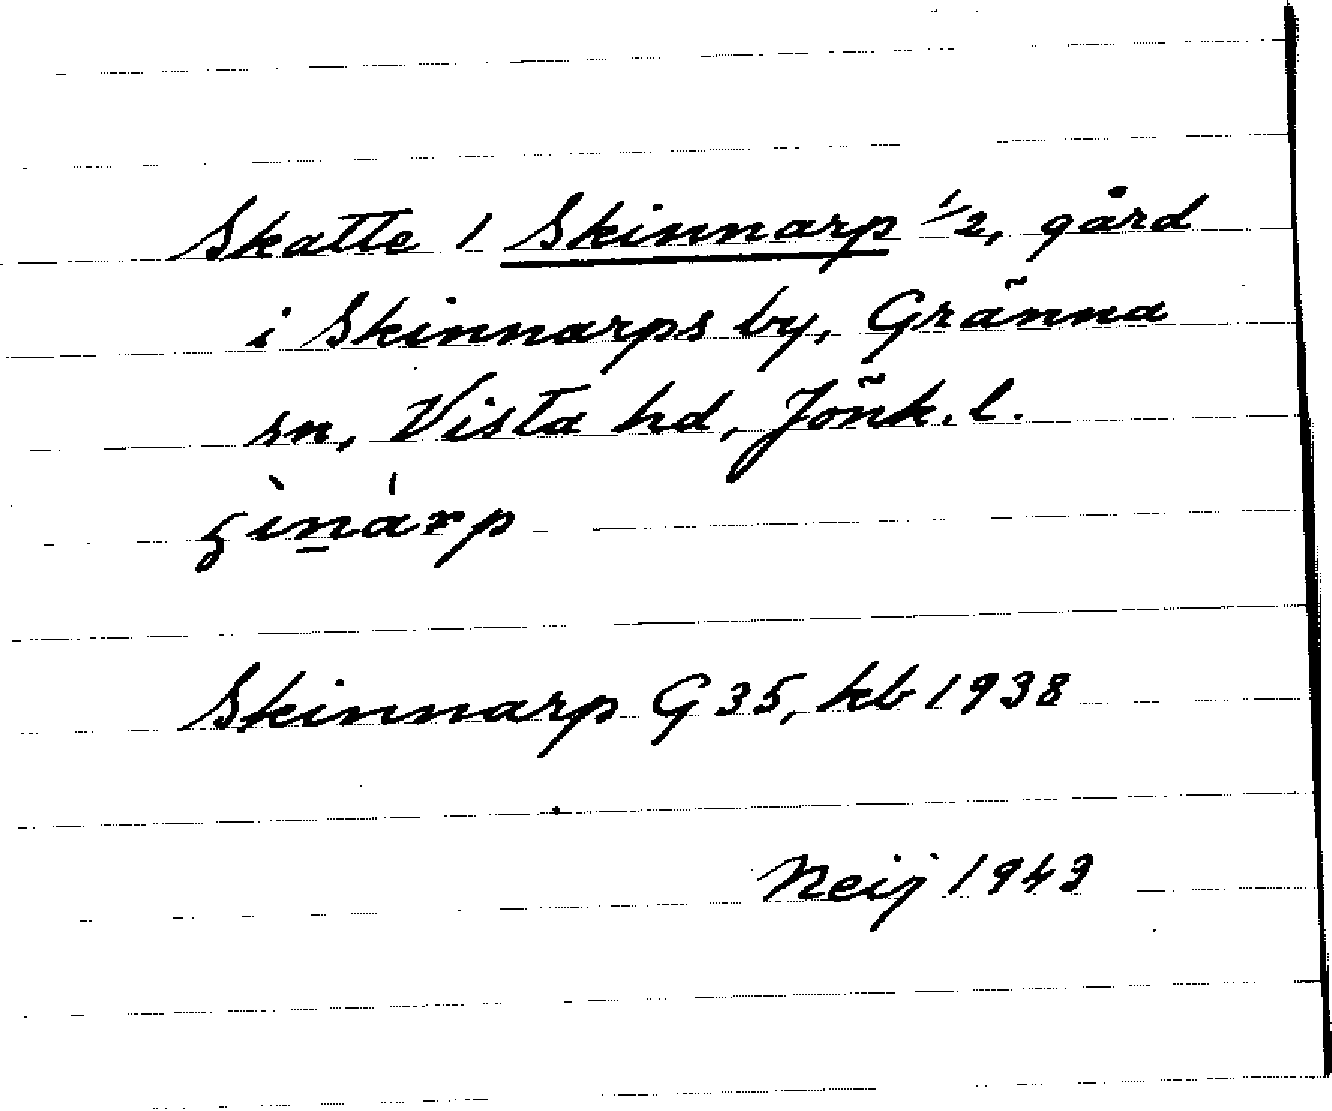 Skatte 1 Skinnarp 1/2, gård
i Skinnarps by, Gränna
sn, Vista hd, Jönk. l.
Skinnarp G 35, kb 1938
Neij 1943